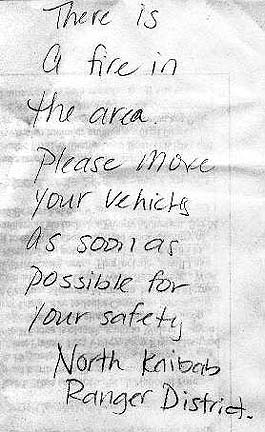 There is
A fire in
the area.
please move
your vehicles
as soon as
possible for
your safety
North Kaibab
Ranger District.